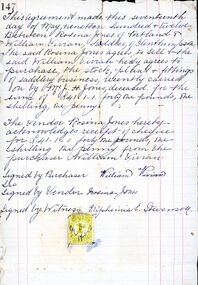 147
This agreement made this seventeenth
day of May, nineteen hundred & twelve
Between Rosina Jones of Portland &
William Vivian, Saddler, of
the said Rosina Jones agrees to sell to the
said William Vivian hereby agrees to
purchase, the stock, plant & fittings
of saddlery business recently carried
on by Jones, deceased, for the
sum of £41.1.1, forty one pounds, one
shilling, one penny.
The vendor Rosina Jones hereby
acknowledges receipt of cheque
for £41.1.1, forty one pounds, one
shilling one penny from the
purchaser William Vivian
Signed by Purchaser William Vivian
Signed by Vendor Rosina Jones
Signed by Witness Stevenson